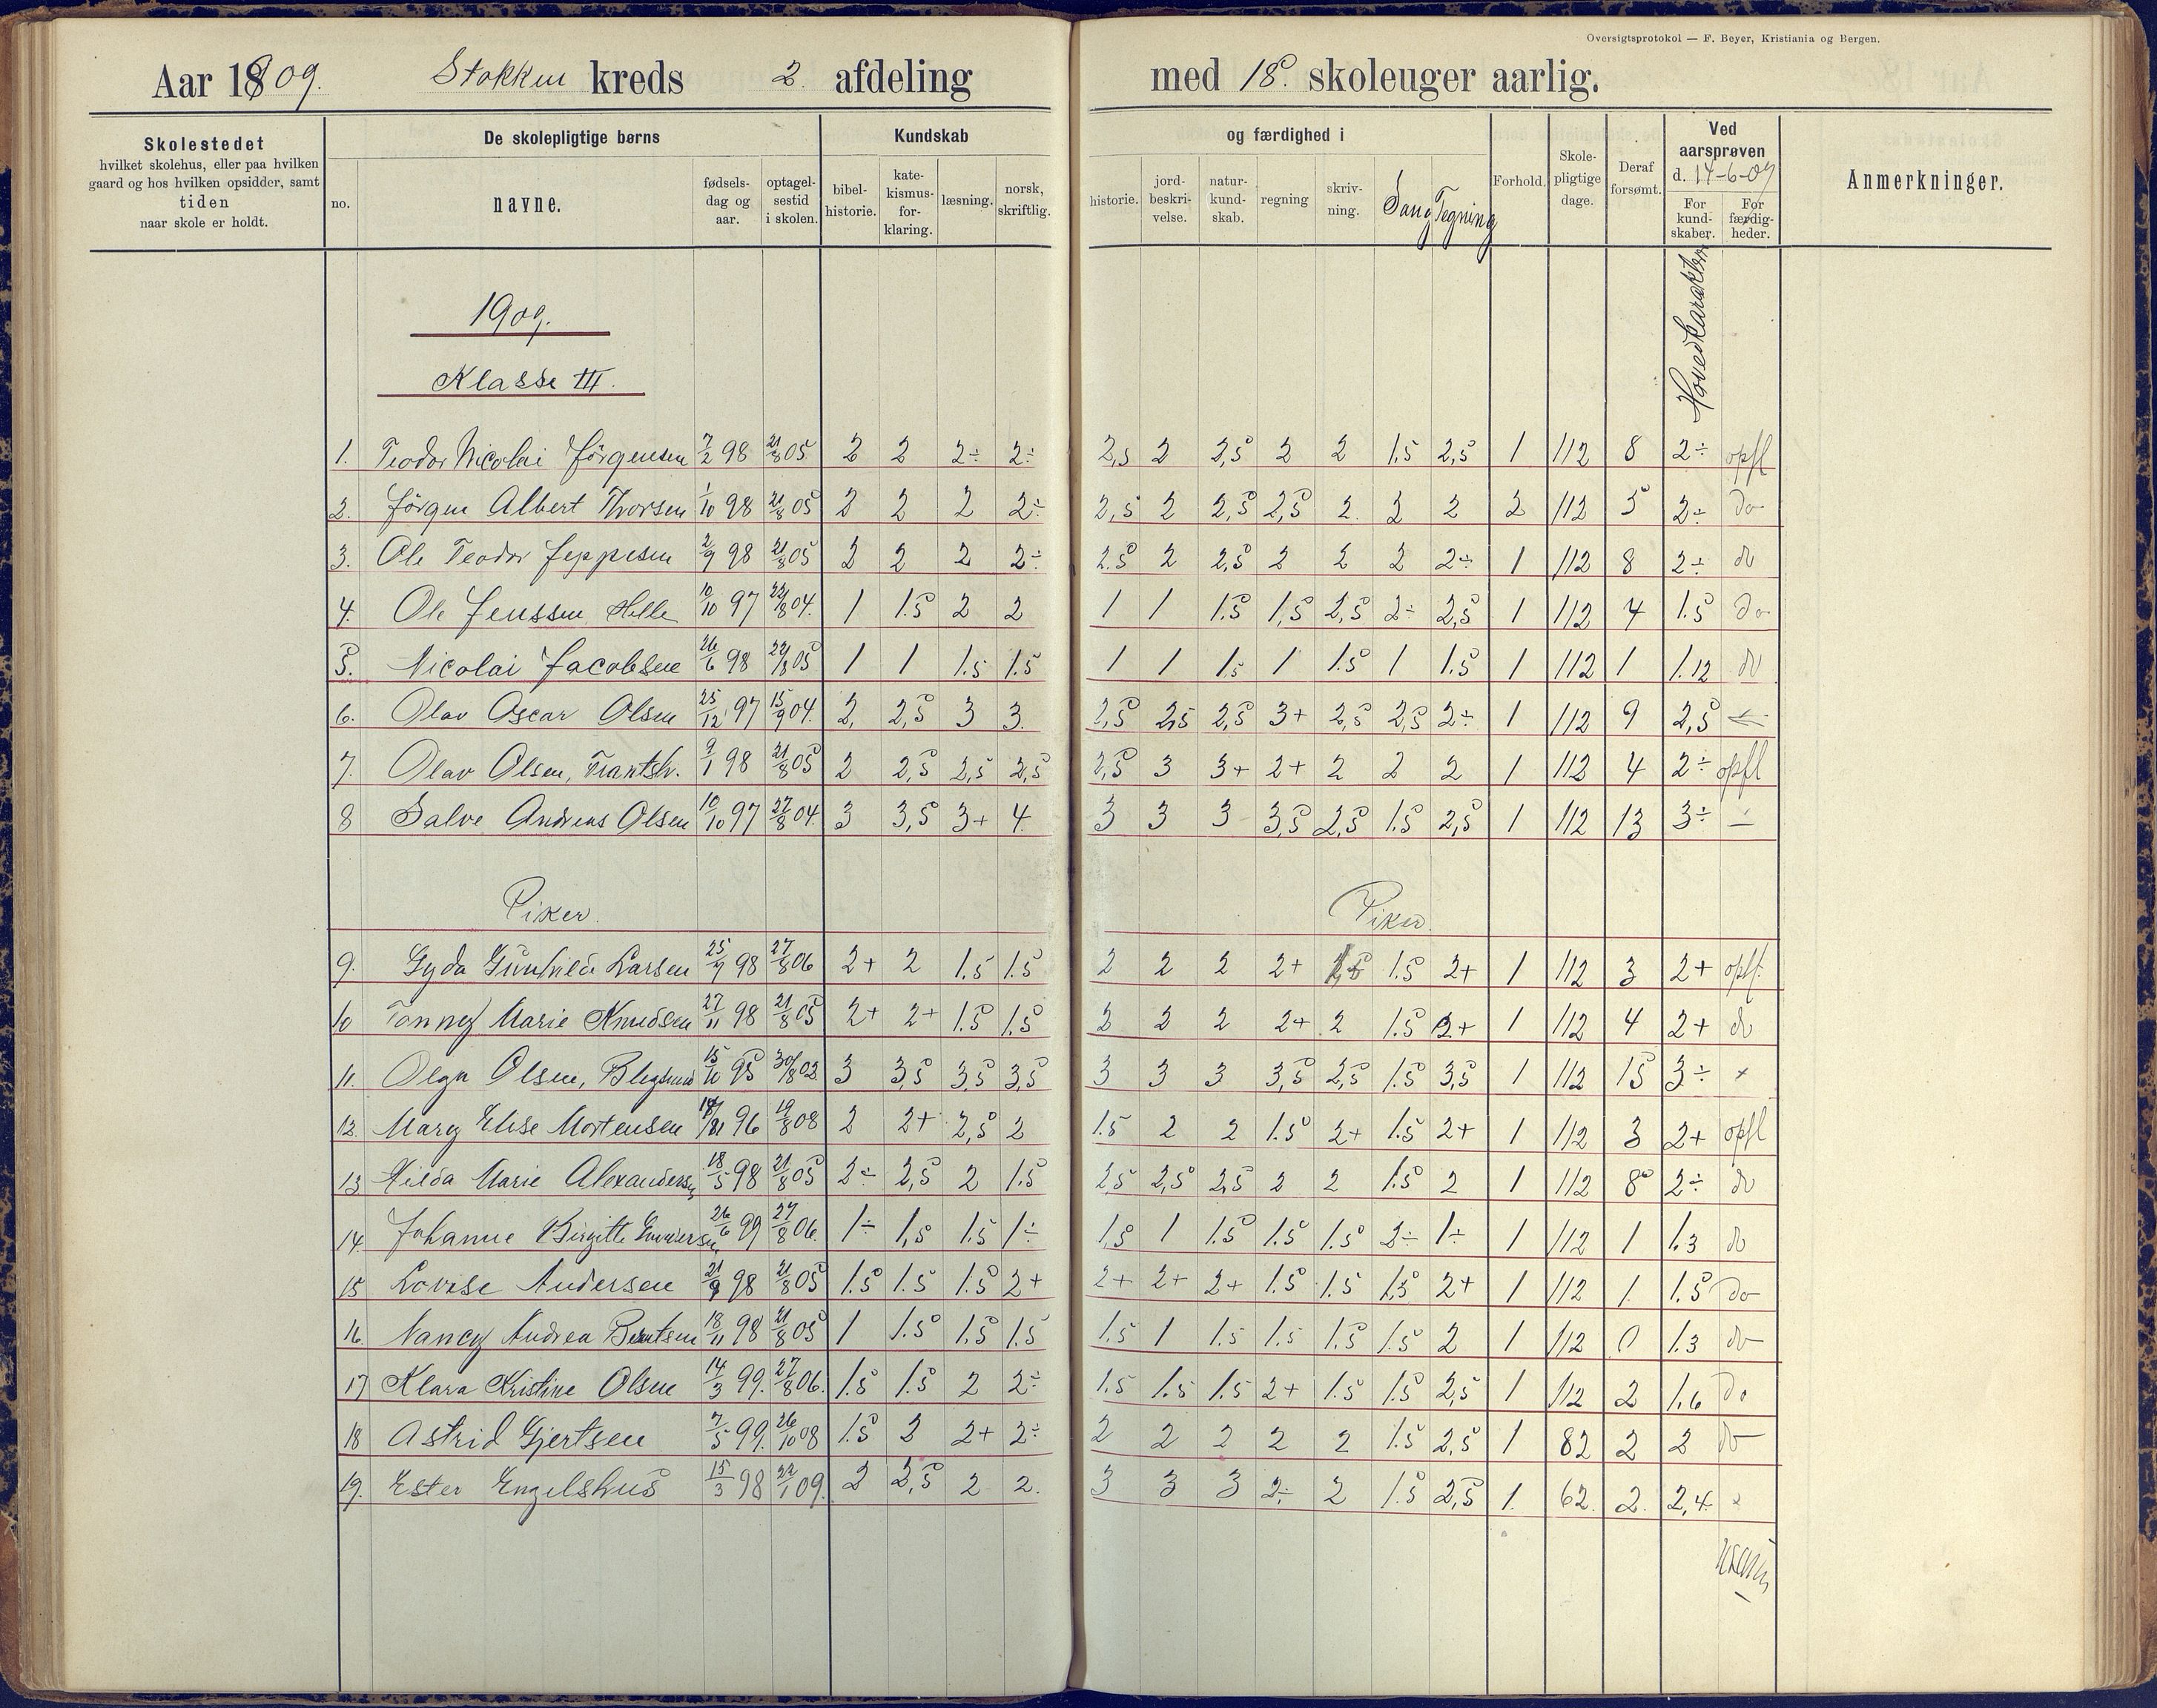 Oversigtsprotokol — F. Beyer, Kristiania og Bergen.
Aar 1909. Stokken kreds 2. afdeling med 18 skoleuger aarlig.
Skolestedet
hvilket skolehus, eller paa hvilken
gaard og hos hvilken opsidder, samt
tiden
naar skole er holdt.
De skolepligtige børns
no. navne. fødsels-dag og aar. optagel-sestid i skolen.
Kundskab og færdighed i
bibel-historie. kate-kismus-for-klaring. læsning. norsk, skriftlig. historie. jord-beskri-velse. natur-kund-skab. regning skriv-ning. Sang Tegning
Forhold. Skole-pligtige dage. Deraf forsømt. Ved aarsprøven d. 14-6-09 For kund-skaber. For færdig-heder. Anmerkninger.
Hovedkarakter
1909.
Klasse III.
1. Teodor Nicolai Jörgensen 7/2 98 21/8 05 2 2 2÷ 2÷ 2,5 2 2,5 2 2 1.5 2,5 1 112 8 2÷ opfl
2. Jörgen Albert Thorsen 1/10 98 21/8 05 2 2 2 2÷ 2,5 2 2,5 2,5 2. 2 2 2 112 5 2÷ do
3. Ole Teodor Jeppesen 2/9 98 21/8 05 2 2 2 2÷ 2.5 2 2,5 2 2 2 2÷ 1 112 8 2÷ do
4. Ole Jenssen Helle 10/10 97 22/8 04. 1 1.5 2 2 1 1 1.5 1,5 2,5 2÷ 2,5 1 112 4 1.5 do
5. Nicolai Jacobsen 26/6 98 22/8 05 1 1 1.5 1.5 1 1 1.5 1 1.5 1 1.5 1 112 1 1.12 do
6. Olav Oscar Olsen 25/12 97 15/9 04. 2, 2,5 3 3. 2,5 2,5 2,5 3+ 2,5 2,5 2÷ 1 112 9 2,5
7. Olav Olsen, 9/1 98 21/8 05 2 2,5 2,5 2,5 2,5 3 3+ 2+ 2 2 2 1 112 4 2÷ opfl
8 Salve Andreas Olsen 10/10 97 27/8 04. 3 3,5 3+ 4. 3 3 3 3,5 2,5 1.5 2,5 1 112 13 3÷ —
Piker. Piker.
9. Gyda Gunhild Larsen 25/9 98 27/8 06 2+ 2 1.5 1.5 2 2 2 2+ 1.5 2+ 1 112 3 2+ opfl.
10 Tanney Marie Knudsen 27/11 98 21/8 05 2+ 2+ 1.5 1.5 2 2 2 2+ 2 1.5 2+ 1 112 4 2+ do
11. Olga Olsen, 15/10 95 30/8 02 3 3,5 3,5 3,5 3 3 3 3,5 2,5 1.5 3,5 1 112 15 3÷ ×
12. Mary Elise Mortensen 96 19/8 08 2 2+ 2,5 2 1.5 2 2 1.5 2+ 1.5 2+ 1 112 3 2+ opfl
13 Hilda Marie Alexandersen 18/5 98 21/8 05 2÷ 2,5 2 1.5 2,5 2,5 2,5 2 2 1.5 2 1 112 8 2÷ do
14. Johanne Birgitte Gundersen 26/6 99 27/8 06. 1÷ 1,5 1.5 1÷ 1,5 1 1.5 1.5 1.5 2÷ 1÷ 1 112 1 1.3 do
15 Lovise Andersen 21/9 98 21/8 05 1.5 1.5 1.5 2+ 2+ 2+ 2+ 1.5 1.5 1.5 2+ 1 112 1 1.5 do
16. Nancy Andrea Berntsen 18/11 98 21/8 05 1 1.5 1.5 1.5 1.5 1 1.5 1.5 1.5 1.5 2 1 112 0 1.3 do
17 Klara Kristine Olsen 14/3 99. 27/8 06. 1.5 1.5 2 2÷ 1.5 1.5 1.5 2+ 1.5 1.5 2,5 1 112 2 1.6 do
18 Astrid Gjertsen 7/5 99. 26/10 08 1.5 2 2+ 2÷ 2 2 2 2 2 1.5 2,5 1 82 2 2 do
19. Ester Engelshus 15/3 98 22/1 09. 2 2,5 2 2. 3 3 3 2÷ 2 1.5 2,5 1. 62. 2. 2,4. ×